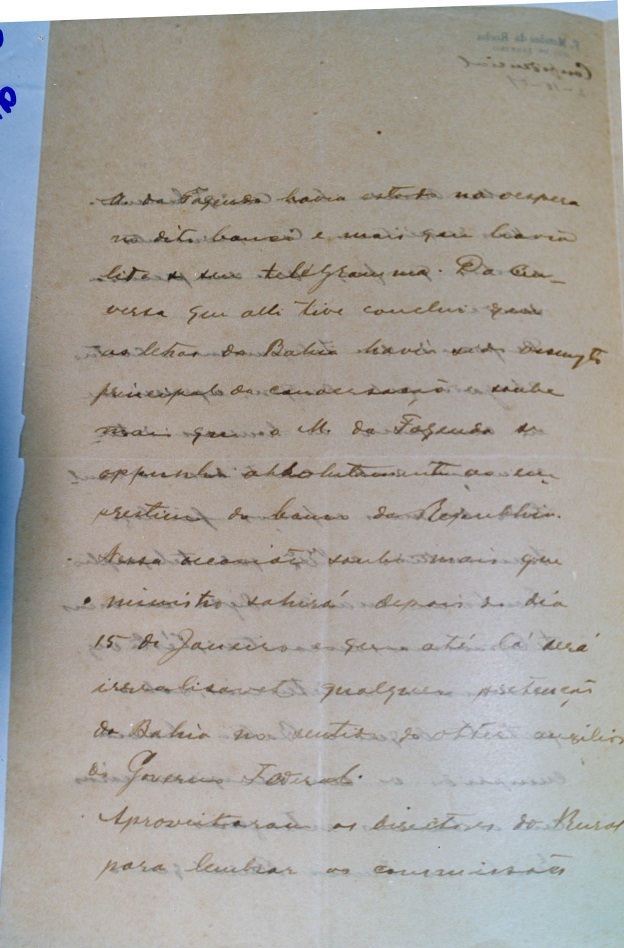 M. da Fazenda havia estado na vespera
no dito banco e mais que havia
lido o seu telegramma. Da con-
versa que alli tive conclui que
as letras da Bahia havia sido assumpto
principal da conversação e soube
mais que o M. da Fazenda se
oppunha absolutamente ao
do banco da Republica.
Nessa occasião soube mais que
ministro sahirá depois do dia
15 de Janeiro e que até lá será
irrealisavel qualquer pretenção
da Bahia no sentido de obter auxilios
do Governo Federal.
Aproveitaram os directores do Rural
para lembrar as commissões